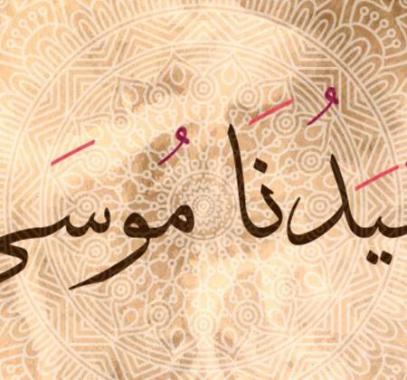 سَيدُنَا مُوسَى